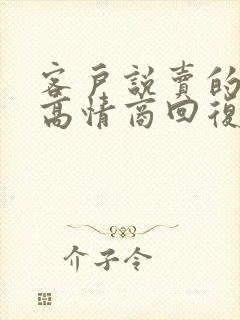 客戶說賣的
高情商回復
介子令